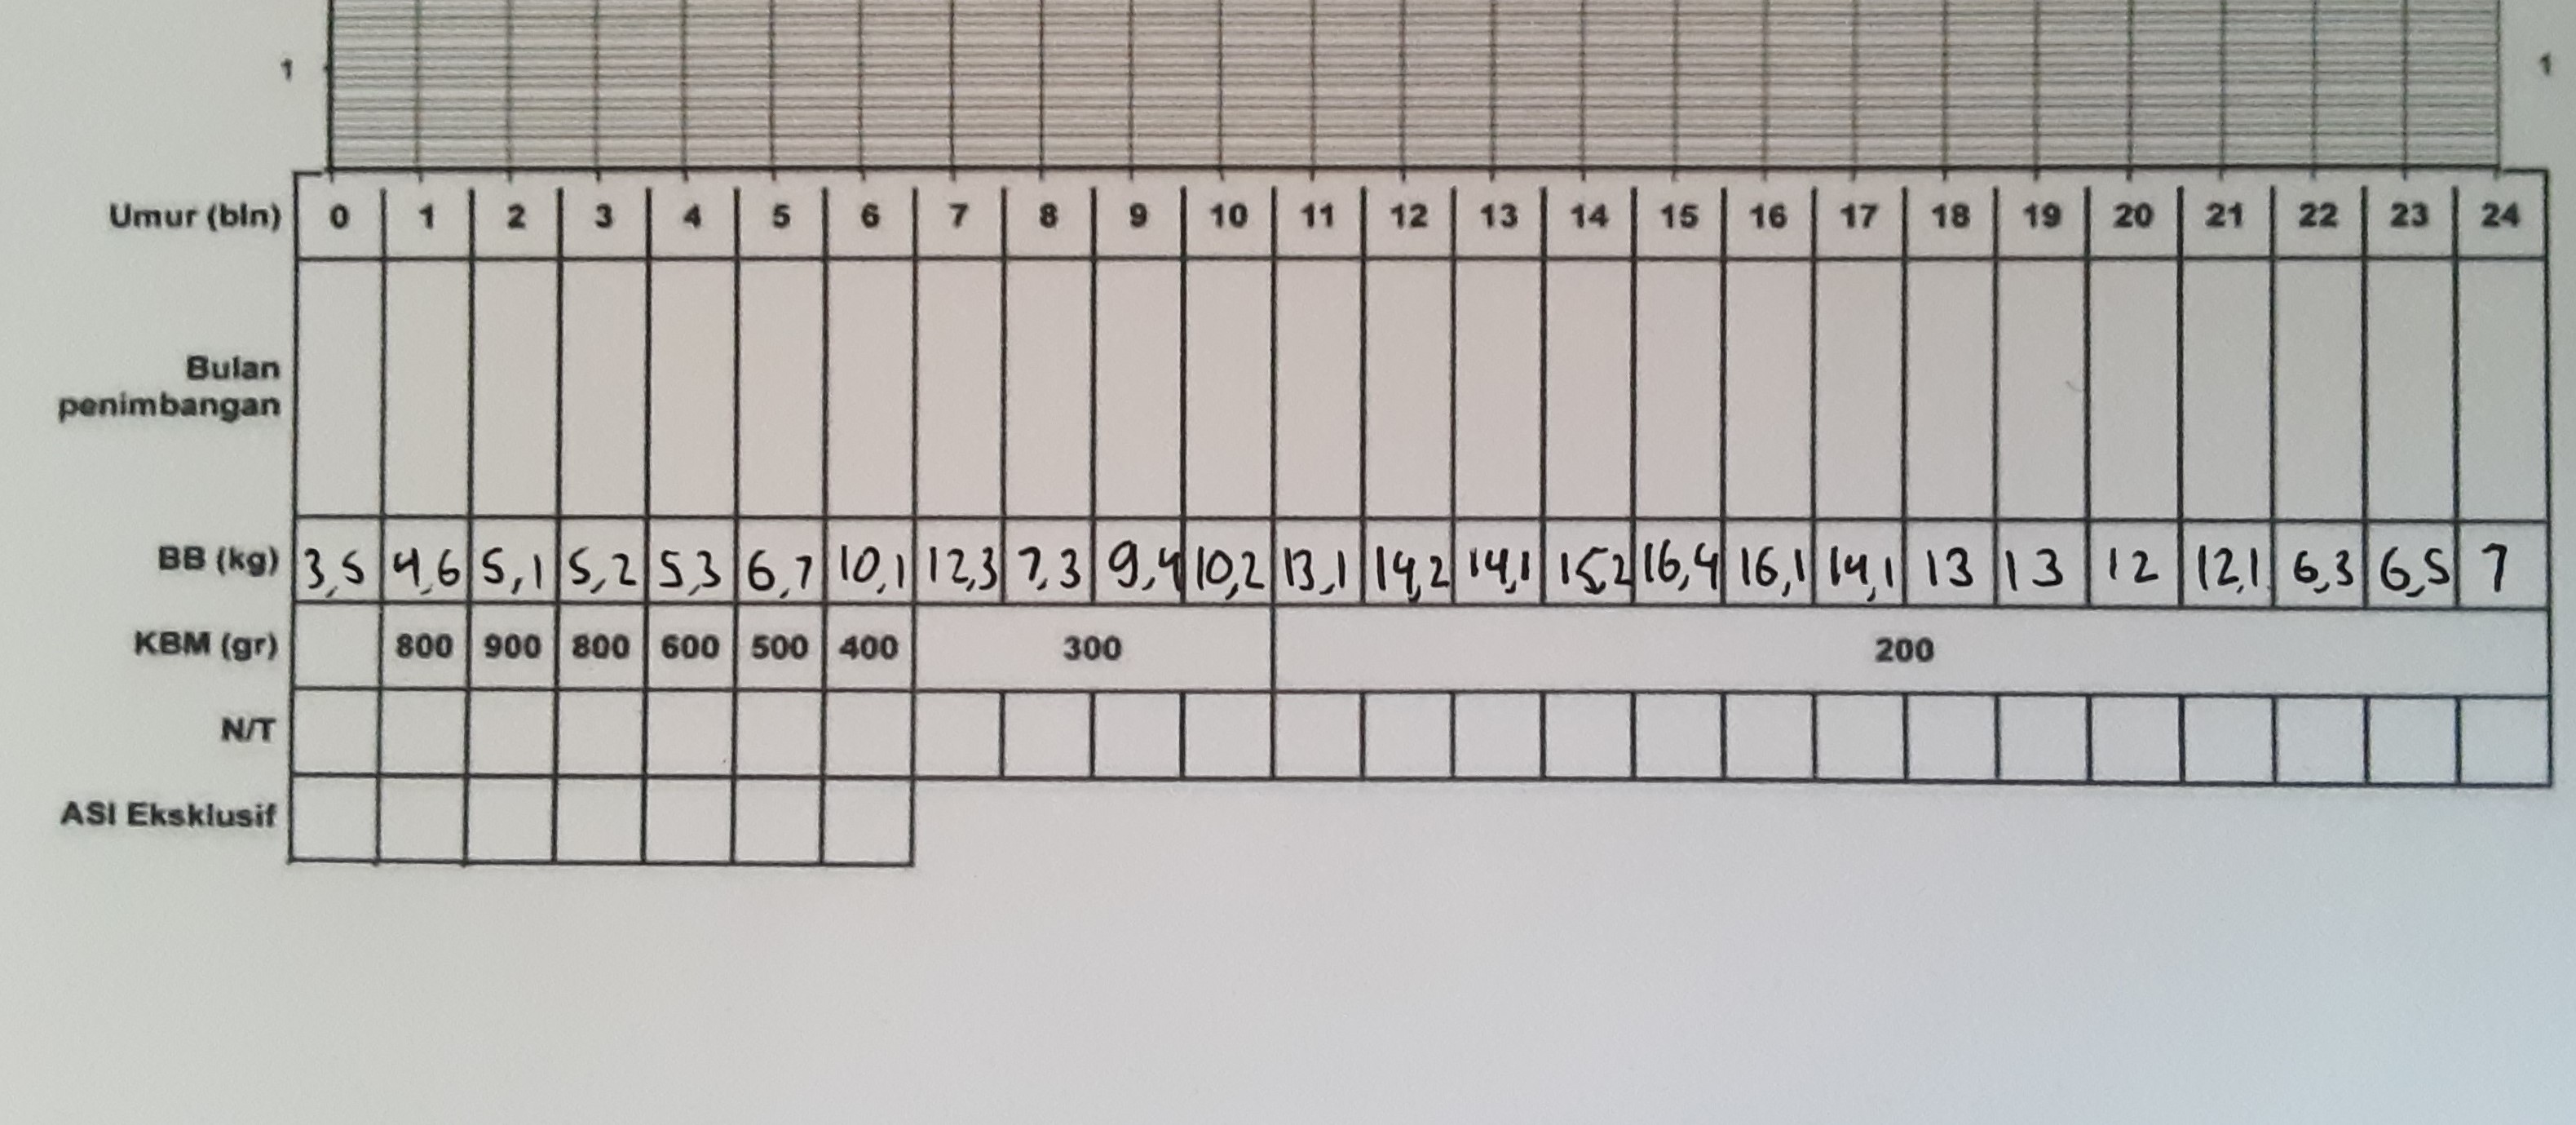 1 1
Umur (bln) 0 1 2 3 4 5 6 7 8 9 10 11 12 13 14 15 16 17 18 19 20 21 22 23 24
Bulan
penimbangan
BB (kg) 3,5 4,6 5,1 5,2 5,3 6,7 10,1 12,3 7,3 9,4 10,2 13,1 14,2 14,1 15,2 16,4 16,1 14,1 13 13 12 12,1 6,3 6,5 7
KBM (gr) 800 900 800 600 500 400 300 200
N/T
ASI Eksklusif